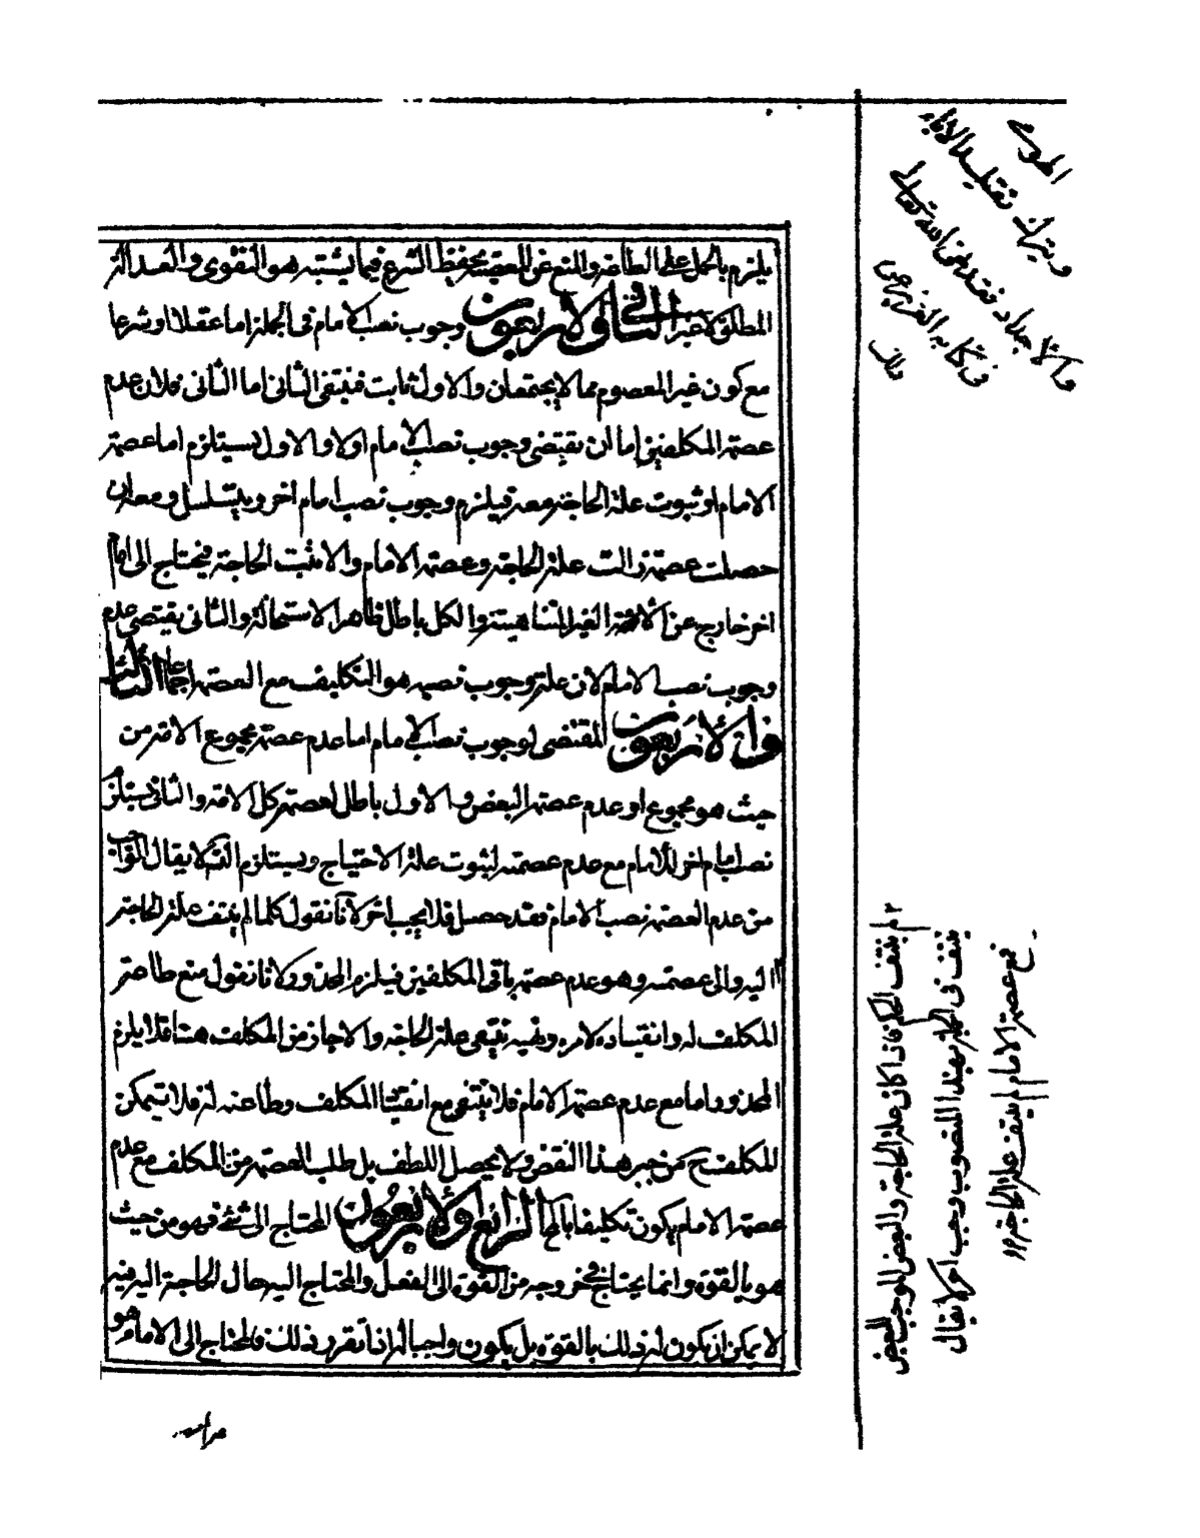 يلزم بالحمل على الطاعة والمنع عن المعصية وحفظ الشرع فيما يشتبه هو التقوى والعدالة
المطلقة لا غير الثاني والاربعون وجوب نصب الامام في الجملة اما عقلا او شرعا
مع كون غير المعصوم مما لا يجتمعان والاول ثابت فينتفى الثانى اما الثانى فلان عدم
عصمة المكلفين اما ان يقتضى وجوب نصب الامام اولا والاول يستلزم اما عصمة
الامام او ثبوت علة الحاجة معه فيلزم وجوب نصب امام اخر ويتسلسل ومعه ان
حصلت عصمته زالت علة الحاجة وعصمة الامام والا يثبت الحاجة فيحتاج الى امام
اخر خارج عن الائمة الغير المتناهية والكل باطل ظاهر الاستحالة والثانى يقتضى عدم
وجوب نصب الامام لان علة وجوب نصبه هو التكليف مع العصمة اجماعا الثالث
والاربعون المقتضى لوجوب نصب الامام اما عدم عصمة مجموع الامة من
حيث هو مجموع او عدم عصمة البعض والاول باطل لعصمة كل الامة والثانى يستلزم
نصب امام اخر للامام مع عدم عصمته لثبوت علة الاحتياج ويستلزم التسلسل لا يقال الواجب
من عدم العصمة نصب الامام فقد حصل فلا يجب اخر لانا نقول كلما لم ينتف علة الحاجة
اليه والى عصمته وهو عدم عصمة باقى المكلفين فيلزم المحذور ولانا نقول مع طاعة
المكلف له وانقياده لامره ونهيه ينتفى علة الحاجة والا جاز من المكلف هنا فلا يلزم
المحذور واما مع عدم عصمة الامام فلا ينتفى مع انقياد المكلف وطاعته له فلا يتمكن
المكلف ح من جبر هذا النقض ولا يحصل اللطف بل طلب العصمة من المكلف مع عدم
عصمة الامام يكون تكليفا بالمحال الرابع والاربعون المحتاج الى شئ فهو من حيث
هو بالقوة وانما يحتاج في خروجه من القوة الى الفعل والمحتاج اليه حال الحاجة اليه فيه
لا يمكن ان يكون له ذلك بالقوة بل يكون واجبا له اذا تقرر ذلك فالمحتاج الى الامام هو
الهوى
وبترك تقليد الاباء
والاجداد فقد نهى الله تعالى
في كتابه العزيز عن
ذلك
لم ينتف الحكم فاذا كان علة الحاجة والبعض الموجب للبعض
ينتف في الجملة بهذا المنصوب وجب اخر لا يقال
مع عصمة الامام لم ينتف علة الحاجة